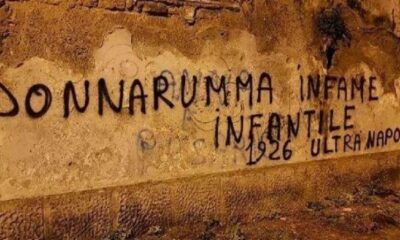 DONNARUMMA INFAME
INFANTILE
1926 ULTRA NAPO